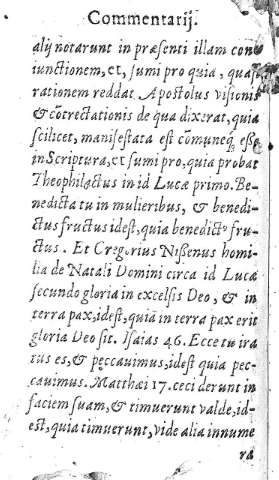 Commentarij.
alij notarunt in præsenti illam con
iunctionem, et, sumi pro quia, quasi
rationem reddat Apostolus visionis
& cõtrectationis de qua dixerat, quia
scilicet, manifestata est cõmuneq́; esse
in Scriptura, et sumi pro, quia probat
Theophilactus in id Lucæ primo. Be-
nedicta tu in mulieribus, & benedi-
ctus fructus idest, quia benedictꝰ fru-
ctus. Et Gregorius Nißenus homi-
lia de Natali Domini circa id Lucæ
secundo gloria in excelsis Deo, & in
terra pax, idest, quia in terra pax erit
gloria Deo sit. Isaias 46. Ecce tu ira
tus es, & peccavimus, idest quia pec-
cavimus. Matthæi 17. ceciderunt in
faciem suam, & timuerunt valde, id-
est, quia timuerunt, vide alia innume
ra